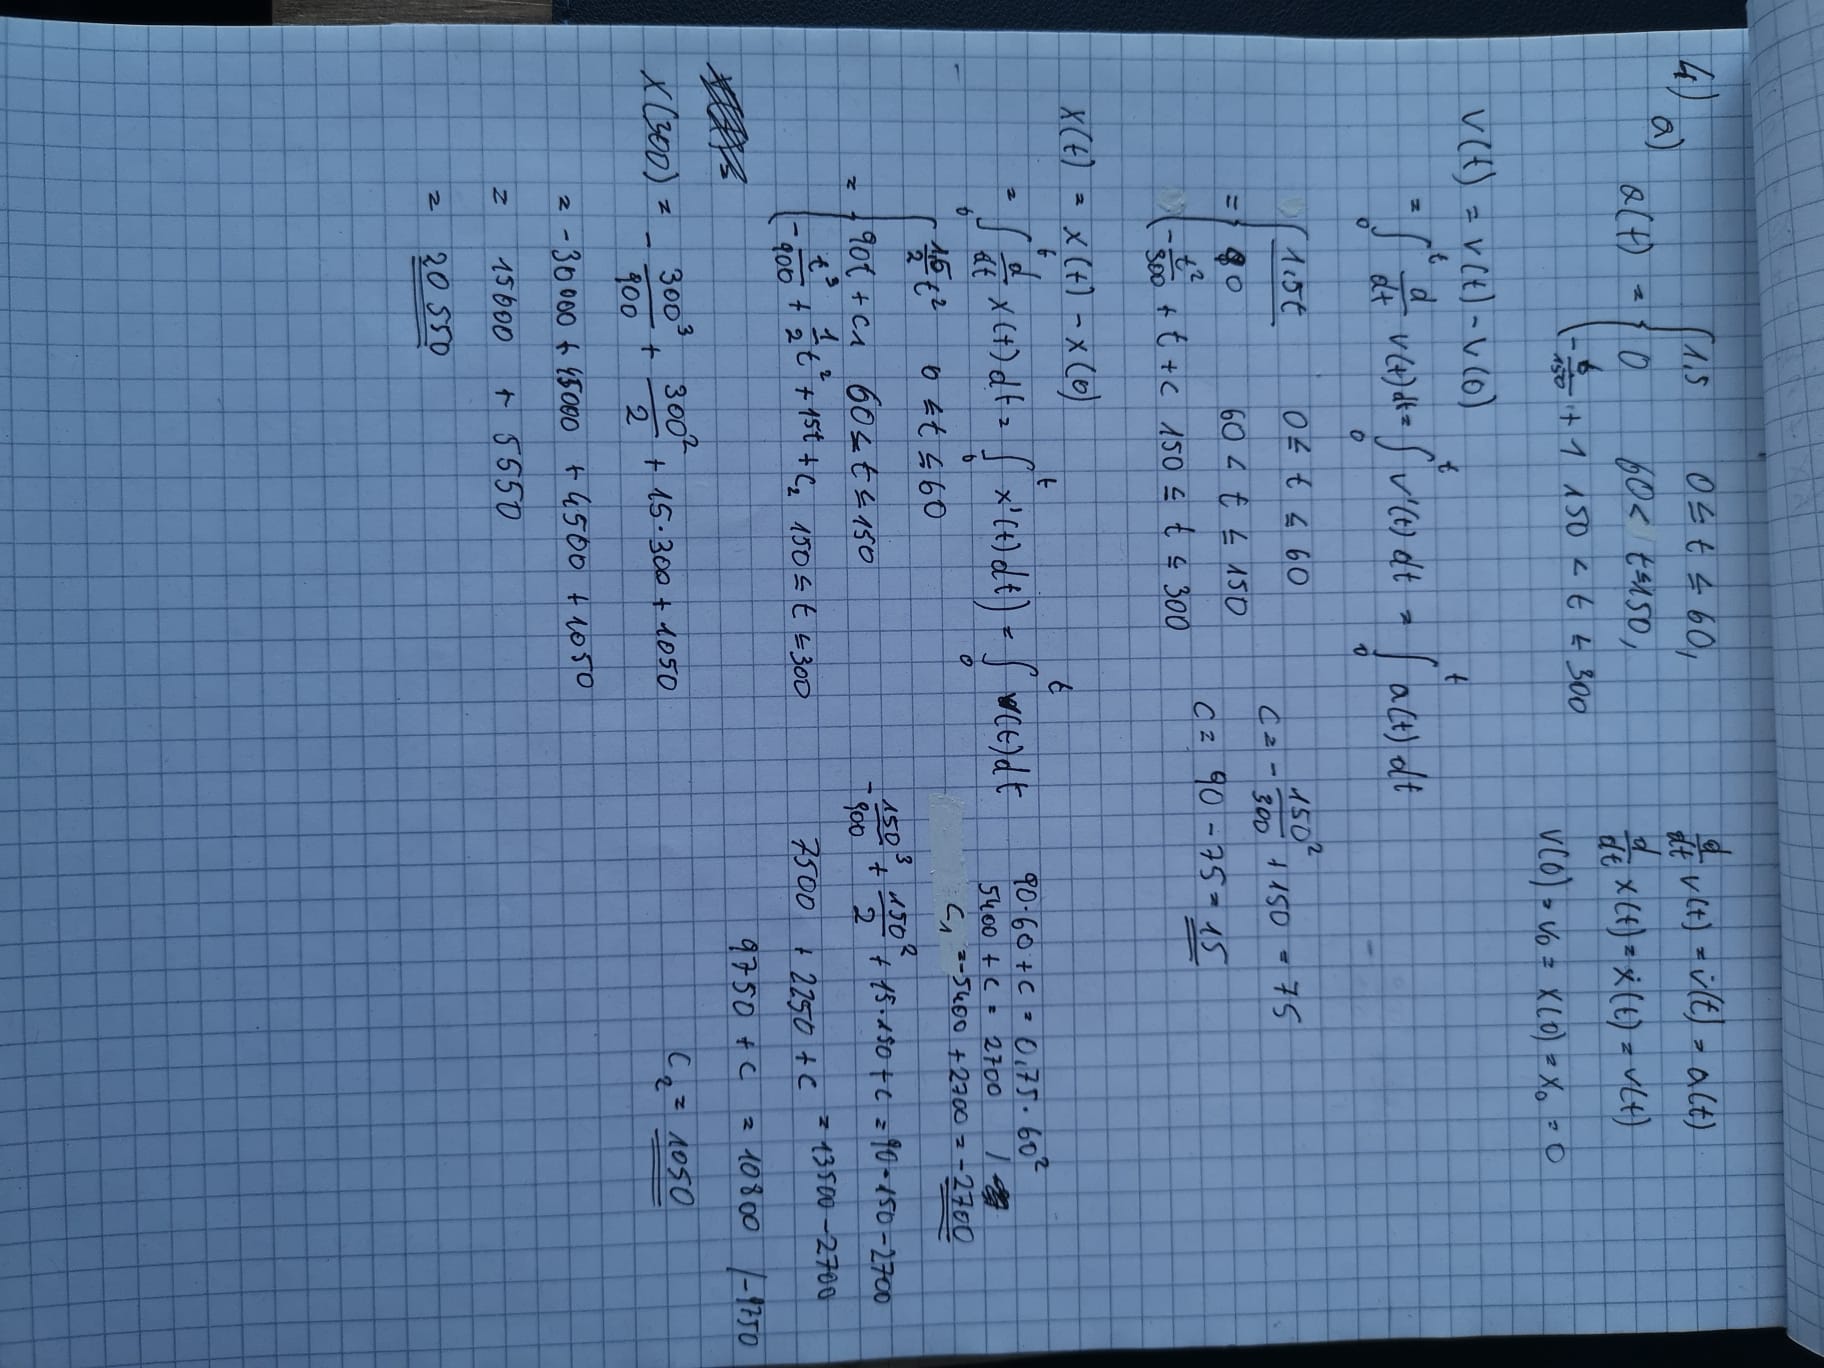 4) a) a(t) = { 1,5 0 ≤ t ≤ 60,
0 60 < t ≤ 150,
-t/150 + 1 150 < t ≤ 300
d/dt v(t) = v̇(t) = a(t)
d/dt x(t) = ẋ(t) = v(t)
v(0) = v₀ = x(0) = x₀ = 0
v(t) = v(t) - v(0)
= ∫₀ᵗ d/dt v(t) dt = ∫₀ᵗ v'(t) dt = ∫₀ᵗ a(t) dt
= { 1,5t 0 ≤ t ≤ 60
90 60 < t ≤ 150
-t²/300 + t + c 150 ≤ t ≤ 300
c = -150²/300 + 150 = 75
c = 90 - 75 = 15
x(t) = x(t) - x(0)
= ∫₀ᵗ d/dt x(t) dt = ∫₀ᵗ x'(t) dt) = ∫₀ᵗ v(t) dt
= { 1,5/2 t² 0 ≤ t ≤ 60
90t + c1 60 ≤ t ≤ 150
-t³/900 + 1/2 t² + 15t + c₂ 150 ≤ t ≤ 300
90·60 + c = 0,75·60²
5400 + c = 2700 /
c₁ = -5400 + 2700 = -2700
-150³/900 + 150²/2 + 15·150 + c = 90·150 - 2700
7500 + 2250 + c = 13500 - 2700
9750 + c = 10800 /-9750
c₂ = 1050
x(300) = -300³/900 + 300²/2 + 15·300 + 1050
= -30000 + 45000 + 4500 + 1050
= 15000 + 5550
= 20 550